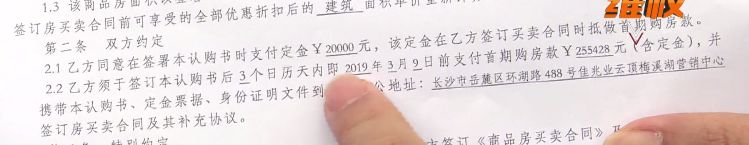 维权
1.3 该商品房面积以
签订房买卖合同前可享受的全部优惠折扣后的 建筑 面积单价重新计
第二条 双方约定
2.1 乙方同意在签署本认购书时支付定金¥20000元,该定金在乙方签订买卖合同时抵做首期购房款。
2.2 乙方须于签订本认购书后3个日历天内即2019年3月9日前支付首期购房款¥255428元(含定金),并
携带本认购书、定金票据、身份证明文件到 公地址:长沙市岳麓区环湖路488号佳兆业云顶梅溪湖营销中心
签订房买卖合同及其补充协议。
特别约定
方签订《商品房买卖合同》及